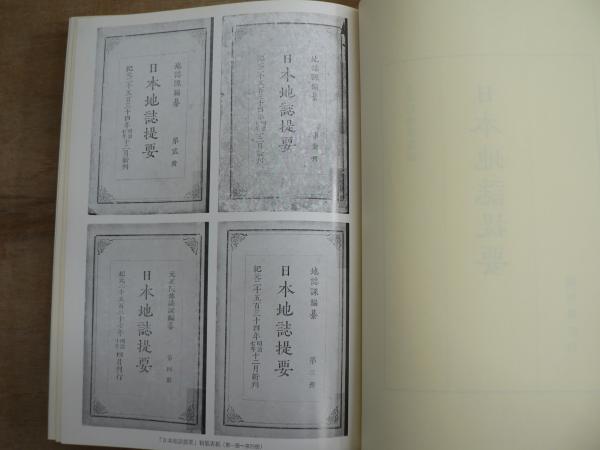 地誌課編纂
日本地誌提要
第壹冊
紀元二千五百三十四年
明治七年
十二月新刊
地誌課編纂
日本地誌提要
第貳冊
紀元二千五百三十四年
明治七年
十二月新刊
地誌課編纂
日本地誌提要
第三冊
紀元二千五百三十四年
明治七年
十二月新刊
元正院地誌課編纂
日本地誌提要
第四冊
紀元二千五百三十七年
明治十年
四月刊行
『日本地誌提要』初版表紙（第一冊〜第四冊）
日本地誌提要